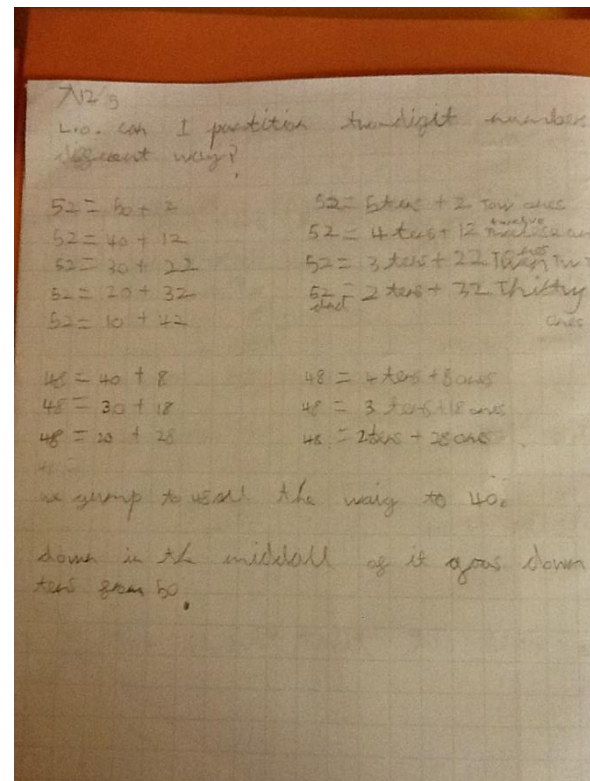 7/12/3
L.O. can I partition two digit numbers
different way?
52 = 50 + 2
52 = 40 + 12
52 = 30 + 22
52 = 20 + 32
52 = 10 + 42
52 = 5 tens + 2 Tow ones
52 = 4 tens + 12
52 = 3 tens + 22
52 = 2 tens + 32 Thirty
ones
48 = 40 + 8
48 = 30 + 18
48 = 20 + 28
48 = 4 tens + 8 ones
48 = 3 tens + 18 ones
48 = 2 tens + 28 ones
we gump to the waig to 40.
down in the middall of it gous down
tens from 50.